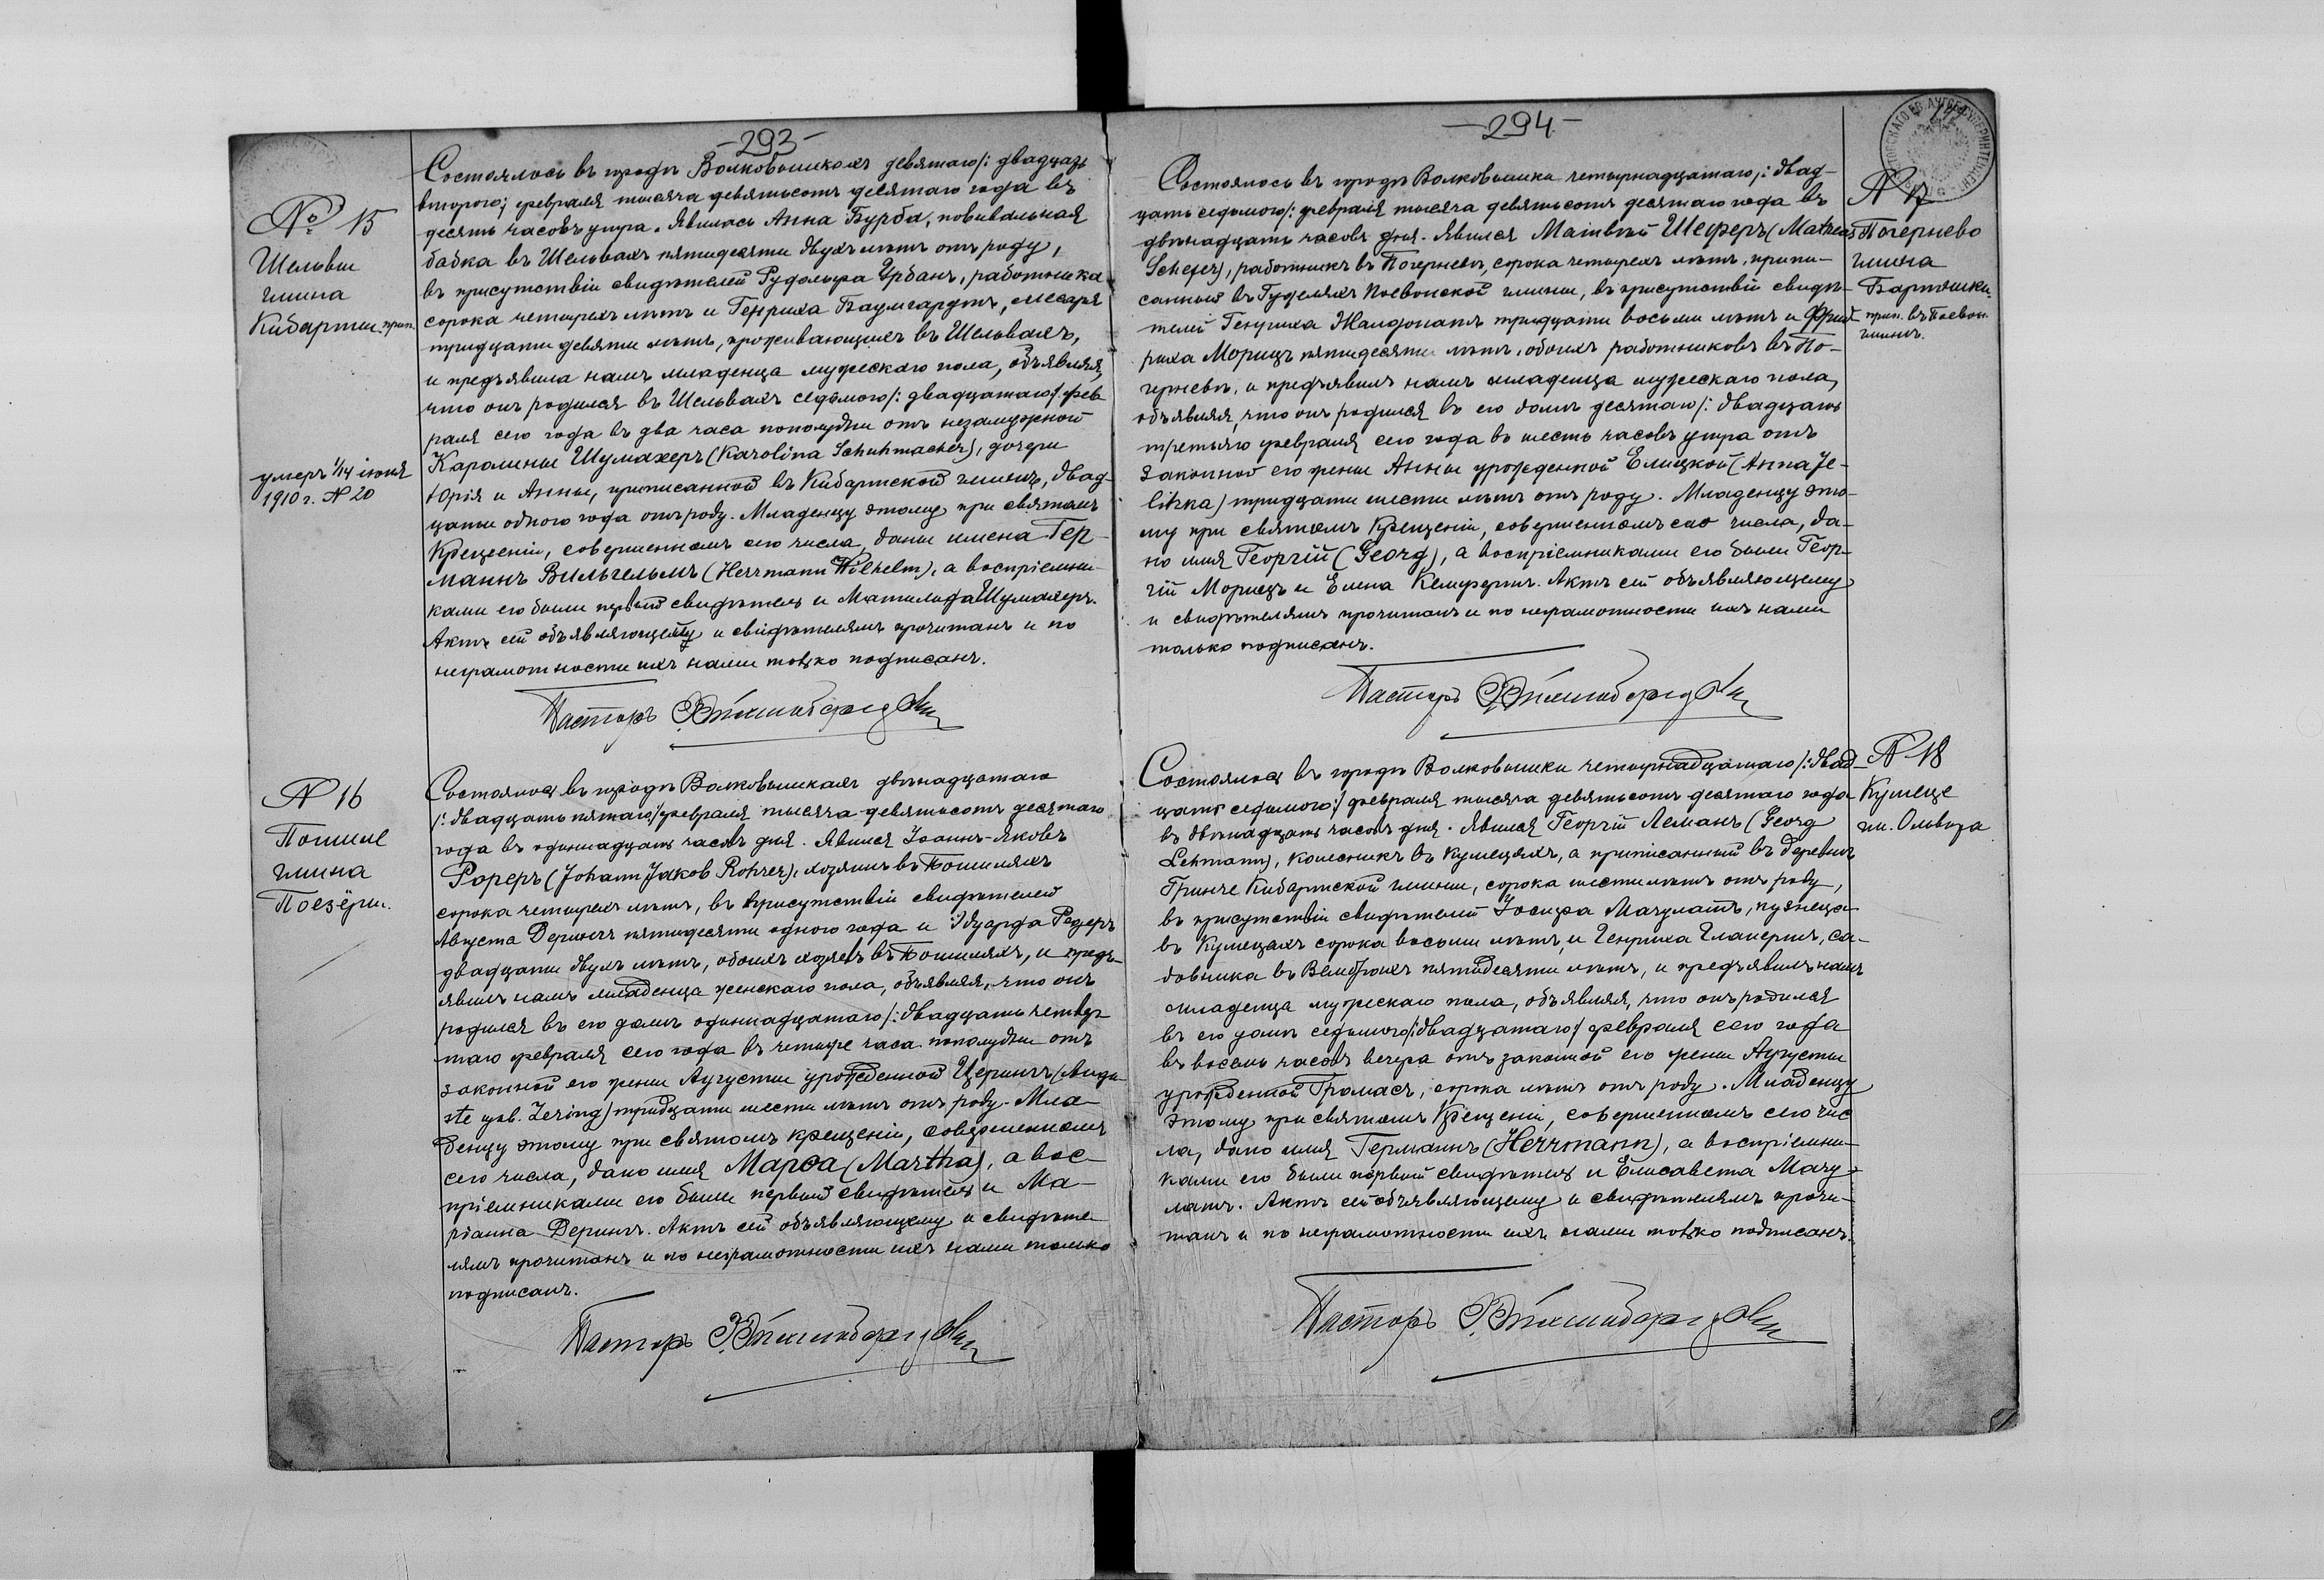 -293-
№ 15
Шельвы
гмина
Кибарты. прип.
умеръ 1/14 іюня
1910 г. № 20
Состоялось въ городѣ Волковышкахъ девятаго /: двадцать
второго :/ февраля тысяча девятьсотъ десятаго года въ
десять часовъ утра. Явилась Анна Бурба, повивальная
бабка въ Шельвахъ пятидесяти двухъ лѣтъ отъ роду,
въ присутствіи свидѣтелей Рудольфа Урбанъ, работника
сорока четырехъ лѣтъ и Генриха Баумгардтъ, слесаря
тридцати девяти лѣтъ, проживающихъ въ Шельвахъ,
и предъявила намъ младенца мужескаго пола, объявляя,
что онъ родился въ Шельвахъ седьмого /: двадцатаго :/ фев-
раля сего года въ два часа пополудни отъ незамужной
Каролины Шумахеръ (Karolina Schuhmacher), дочери
Юрія и Анны, приписанной въ Кибартской гминѣ, двад-
цати одного года отъ роду. Младенцу этому при святомъ
Крещеніи, совершенномъ сего числа, даны имена Гер-
маннъ Вильгельмъ (Herrmann Wilhelm), а воспріемни-
ками его были первый свидѣтель и Матильда Шумахеръ.
Актъ сей объявляющему и свидѣтелямъ прочитанъ и по
неграмотности ихъ нами только подписанъ.
Пасторъ
№ 16
Пошиле
гмина
Поезёры.
Состоялось въ городѣ Волковышкахъ двѣнадцатаго
/: двадцать пятаго :/ февраля тысяча девятьсотъ десятаго
года въ одиннадцать часовъ дня. Явился Іоаннъ-Яковъ
Рореръ (Johann Jakob Rohrer), хозяинъ въ Пошиляхъ
сорока четырехъ лѣтъ, въ присутствіи свидѣтелей
Августа Дерингъ пятидесяти одного года и Эдуарда Редеръ
двадцати двухъ лѣтъ, обоихъ хозяевъ въ Пошиляхъ, и предъ-
явилъ намъ младенца женскаго пола, объявляя, что онъ
родился въ его домѣ одиннадцатаго /: двадцать четвер-
таго февраля сего года въ четыре часа пополудни отъ
законной его жены Аугусты урожденной Церингъ (Augu-
ste geb. Zering) тридцати шести лѣтъ отъ роду. Мла-
денцу этому при святомъ крещеніи, совершенномъ
сего числа, дано имя Марѳа (Martha), а вос-
пріемниками его были первый свидѣтель и Ма-
ріанна Дерингъ. Актъ сей объявляющему и свидѣте-
лямъ прочитанъ и по неграмотности ихъ нами только
подписанъ.
Пасторъ
-294-
№ 17
Погернево
гмина
Бартошки.
прип. въ Поевон.
гминѣ.
Состоялось въ городѣ Волковышки четырнадцатаго /: двад-
цать седьмого :/ февраля тысяча девятьсотъ десятаго года въ
двѣнадцать часовъ дня. Явился Матвѣй Шеферъ (Matheas
Schefer), работникъ въ Погерневѣ, сорока четырехъ лѣтъ, припи-
санный въ Гуделяхъ Поевонской гмины, въ присутствіи свидѣ-
телей Генриха Жалдонатъ тридцати восьми лѣтъ и Фрид-
риха Морицъ пятидесяти лѣтъ, обоихъ работниковъ въ По-
герневѣ, и предъявилъ намъ младенца мужескаго пола,
объявляя, что онъ родился въ его домѣ десятаго /: двадцать
третьяго февраля сего года въ шесть часовъ утра отъ
законной его жены Анны урожденной Елицкой (Anna Je-
litzka) тридцати шести лѣтъ отъ роду. Младенцу это-
му при святомъ Крещеніи, совершенномъ сего числа, да-
но имя Георгій (Georg), а воспріемниками его были Геор-
гій Морицъ и Елена Кемфертъ. Актъ сей объявляющему
и свидѣтелямъ прочитанъ и по неграмотности ихъ нами
только подписанъ.
Пасторъ
№ 18
Кумеце
гм. Ольвита
Состоялось въ городѣ Волковышки четырнадцатаго /: двад-
цать седьмого :/ февраля тысяча девятьсотъ десятаго года
въ двѣнадцать часовъ дня. Явился Георгій Леманъ (Georg
Lehmann), колесникъ въ Кумецяхъ, а приписанный въ деревнѣ
Гринче Кибартской гмины, сорока шести лѣтъ отъ роду,
въ присутствіи свидѣтелей Іосифа Мачулатъ, кузнеца
въ Кумецяхъ сорока восьми лѣтъ, и Генриха Гланертъ, са-
довника въ пятидесяти лѣтъ, и предъявилъ намъ
младенца мужескаго пола, объявляя, что онъ родился
въ его домѣ седьмого /: двадцатаго :/ февраля сего года
въ восемь часовъ вечера отъ законной его жены Аугусты
урожденной Громасъ, сорока лѣтъ отъ роду. Младенцу
этому при святомъ Крещеніи, совершенномъ сего чис-
ла, дано имя Германнъ (Herrmann), а воспріемни-
ками его были первый свидѣтель и Елисавета Мачу-
латъ. Актъ сей объявляющему и свидѣтелямъ прочи-
танъ и по неграмотности ихъ нами только подписанъ.
Пасторъ